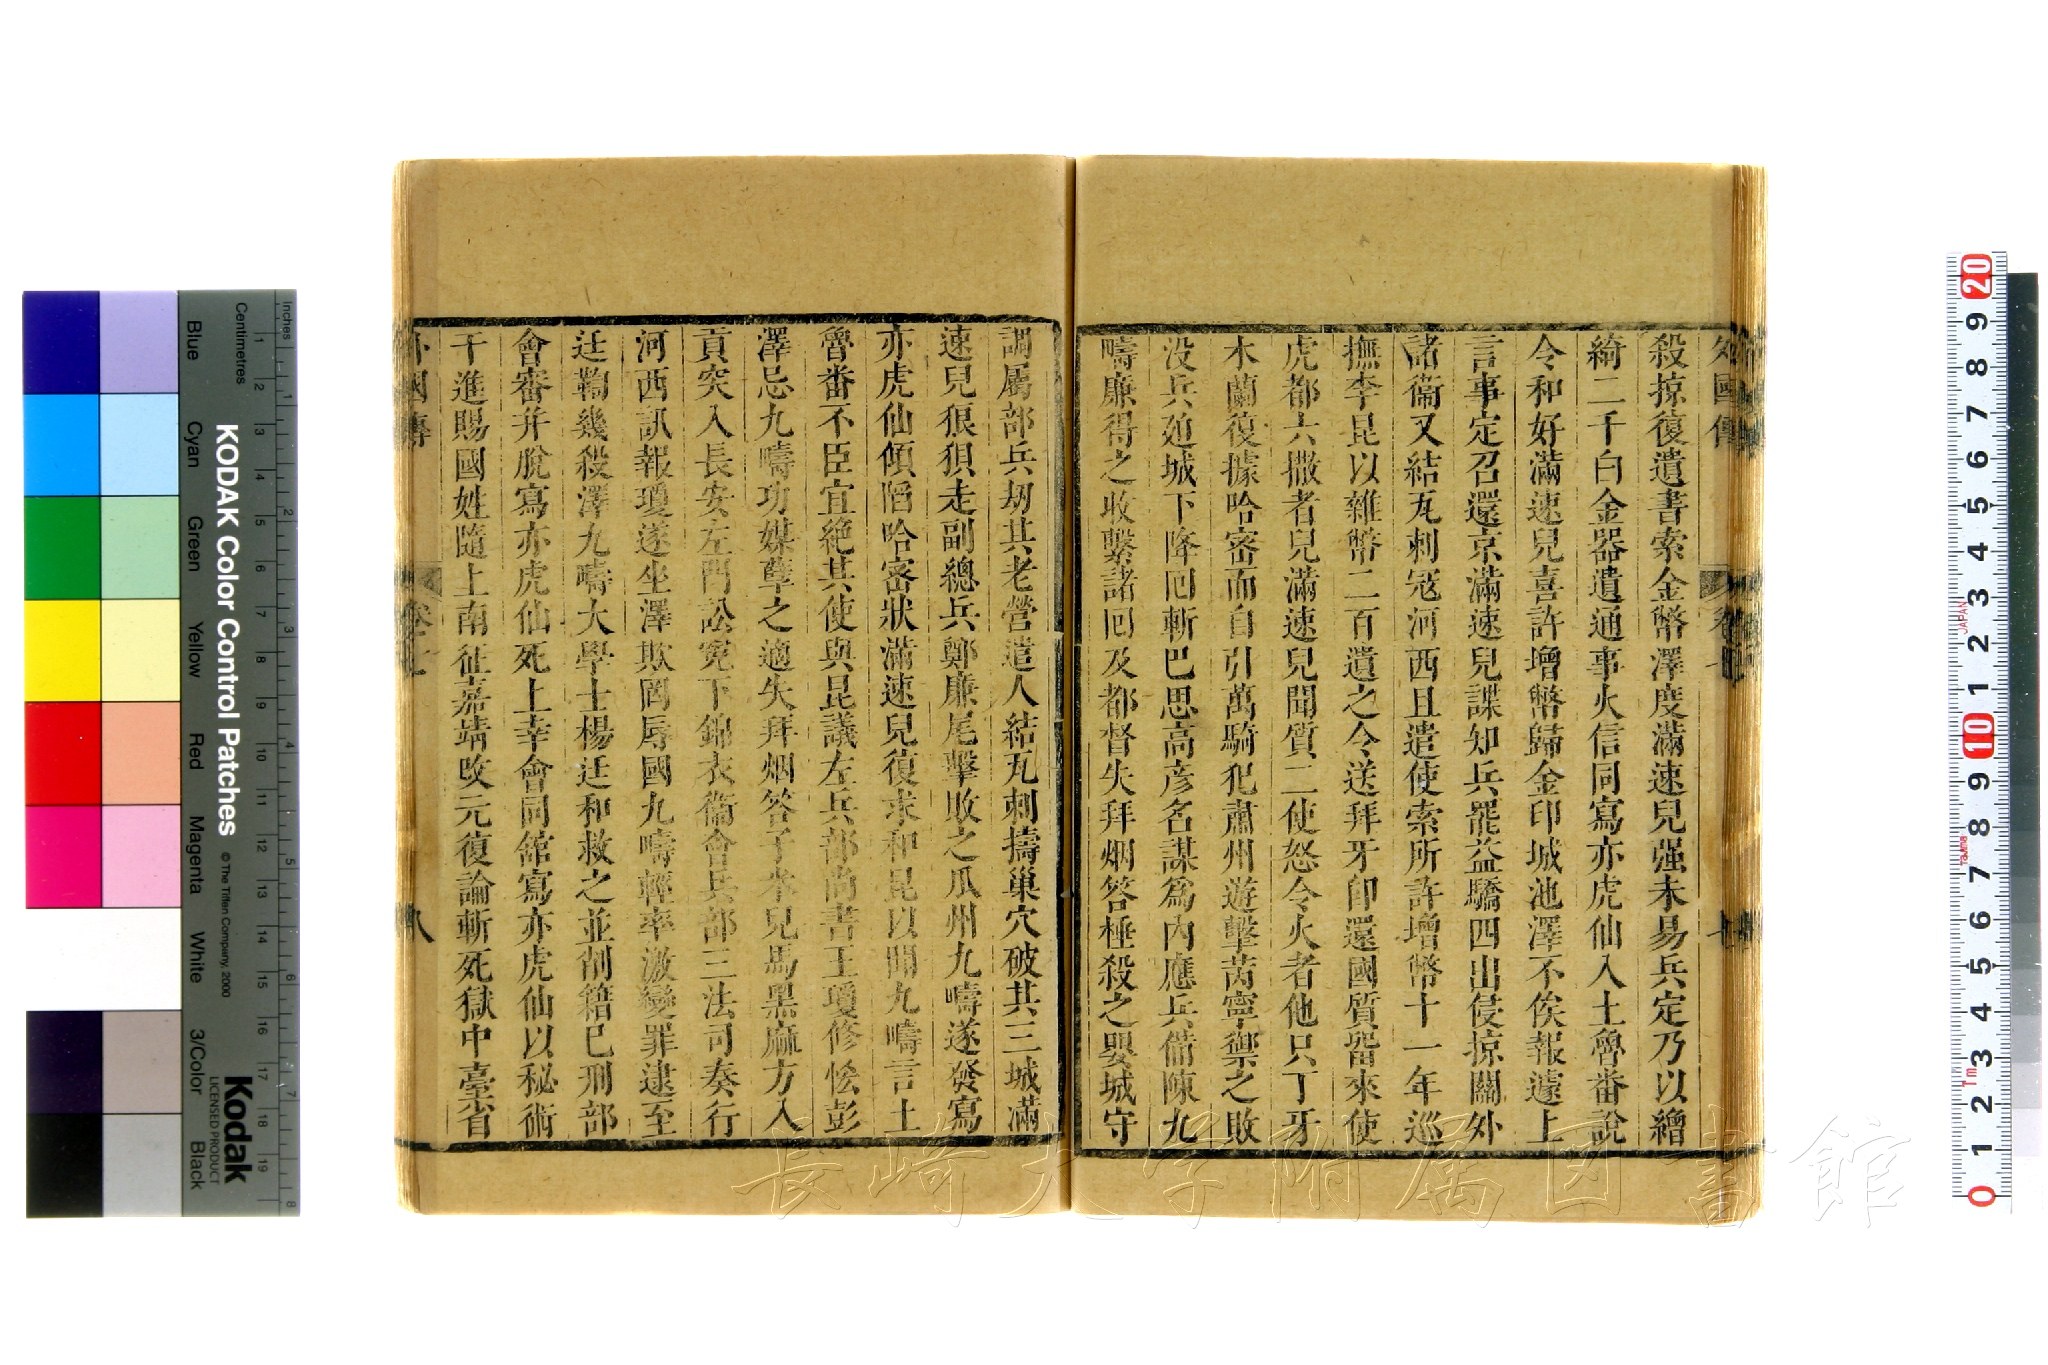 外國傳 卷七 七
殺掠復遺書索金幣澤度滿速兒强未易兵定乃以繒
綺二千白金器遣通事火信同寫亦虎仙入土魯番說
令和好滿速兒喜許增幣歸金印城池澤不俟報遽上
言事定召還京滿速兒諜知兵罷益驕四出侵掠關外
諸衞又結瓦刺冦河西且遣使索所許增幣十一年巡
撫李昆以雜幣二百遺之令送拜牙卽還國質畱來使
虎都六撒者兒滿速兒聞質二使怒令火者他只丁牙
木蘭復據哈密而自引萬騎犯肅州遊擊芮寧禦之敗
没兵廹城下降囘斬巴思高彦名謀爲內應兵備陳九
疇廉得之收繫諸囘及都督失拜烟答棰殺之嬰城守
調屬部兵刼其老營遣人結瓦刺擣巢穴破其三城滿
速兒狼狽走副總兵鄭廉尾擊敗之瓜州九疇遂發寫
亦虎仙傾陷哈密狀滿速兒復求和昆以聞九疇言土
魯番不臣宜絶其使與昆議左兵部尚書王瓊修恠彭
澤忌九疇功媒孽之適失拜烟答子米兒馬黑麻方入
貢突入長安左門訟寃下錦衣衞會兵部三法司奏行
河西訊報瓊遂坐澤欺罔辱國九疇輕率激變罪逮至
廷鞫幾殺澤九疇大學士楊廷和救之並削籍巳刑部
會審并脫寫亦虎仙死上幸會同舘寫亦虎仙以秘術
干進賜國姓隨上南征嘉靖攺元復論斬死獄中臺省
外國傳 卷之七 八
KODAK Color Control Patches
© The Tiffen Company, 2000
Kodak
LICENSED PRODUCT
Inches
Centimetres
Blue Cyan Green Yellow Red Magenta White 3/Color Black
1 2 3 4 5 6 7 8 9 10 11 12 13 14 15 16 17 18 19
1 2 3 4 5 6 7 8
20 9 8 7 6 5 4 3 2 1 10 9 8 7 6 5 4 3 2 1 0
JAPAN
Tajima
長崎大学附属図書館